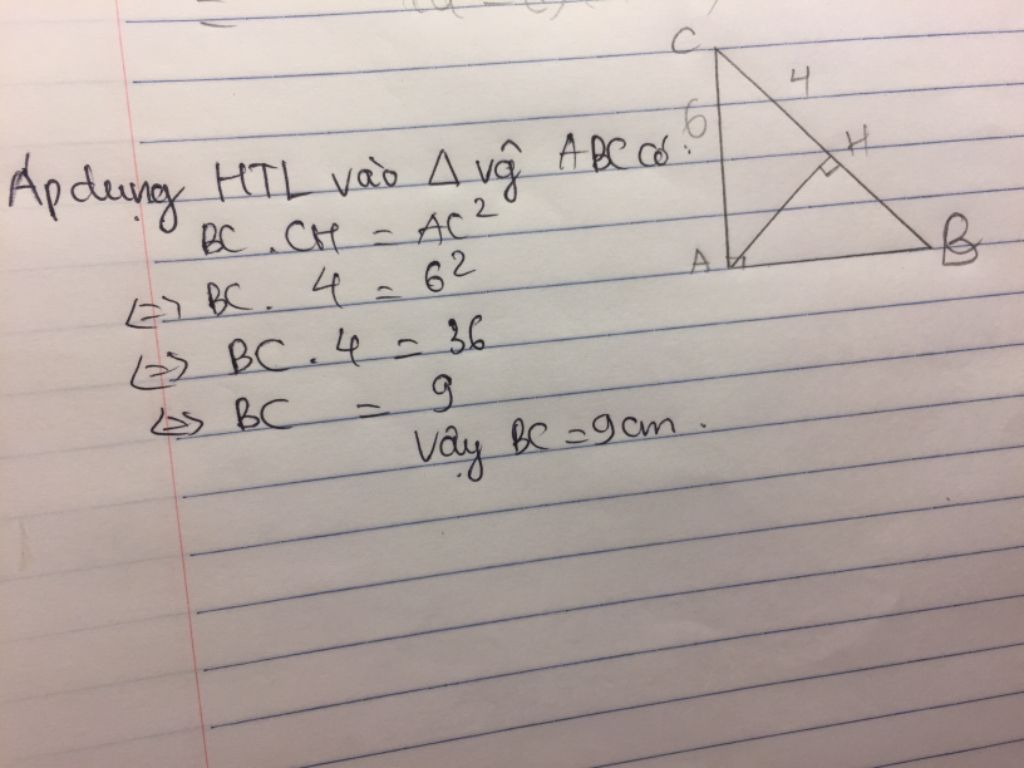 C
4
6
H
Áp dụng HTL vào Δ vg ABC có:
A
B
BC . CH = AC²
<=> BC . 4 = 6²
<=> BC . 4 = 36
<=> BC = 9
Vậy BC = 9cm .